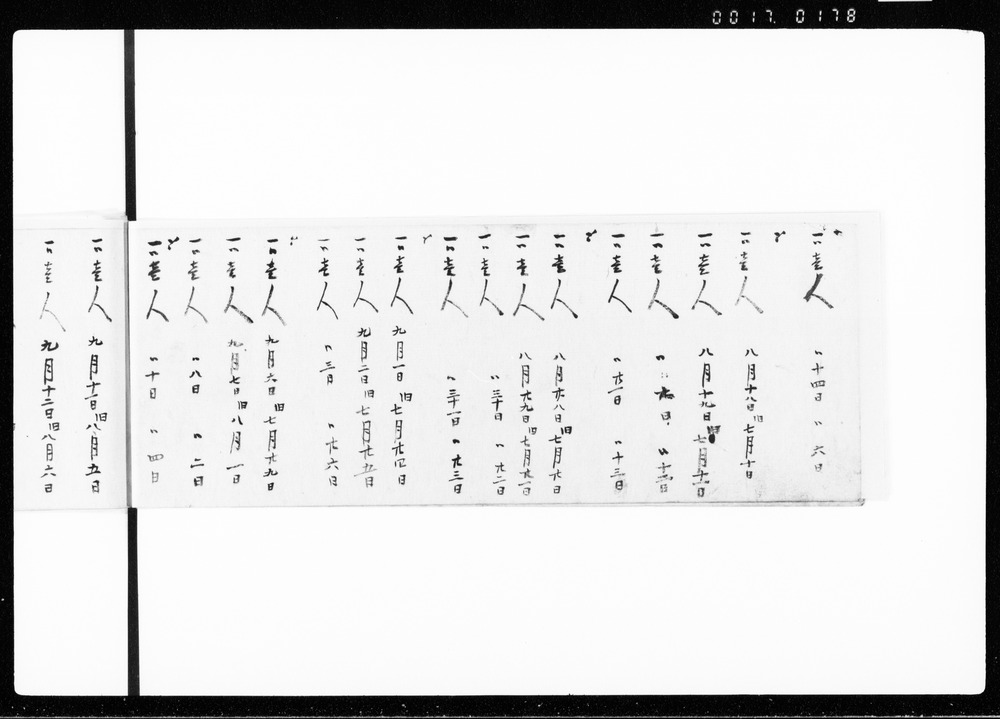 0017. 0178
一〃壱人 〃十四日 〃六日
一〃壱人 八月十八日旧七月十日
一〃壱人 八月十九日旧七月十一日
一〃壱人 〃廿日 〃十二日
一〃壱人 〃廿一日 〃十三日
一〃壱人 八月廿八日旧七月廿日
一〃壱人 八月廿九日旧七月廿一日
一〃壱人 〃三十日 〃廿二日
一〃壱人 〃三十一日 〃廿三日
一〃壱人 九月一日旧七月廿四日
一〃壱人 九月二日旧七月廿五日
一〃壱人 〃三日 〃廿六日
一〃壱人 九月六日旧七月廿九日
一〃壱人 九月七日旧八月一日
一〃壱人 〃八日 〃二日
一〃壱人 〃十日 〃四日
一〃壱人 九月十一日旧八月五日
一〃壱人 九月十二日旧八月六日